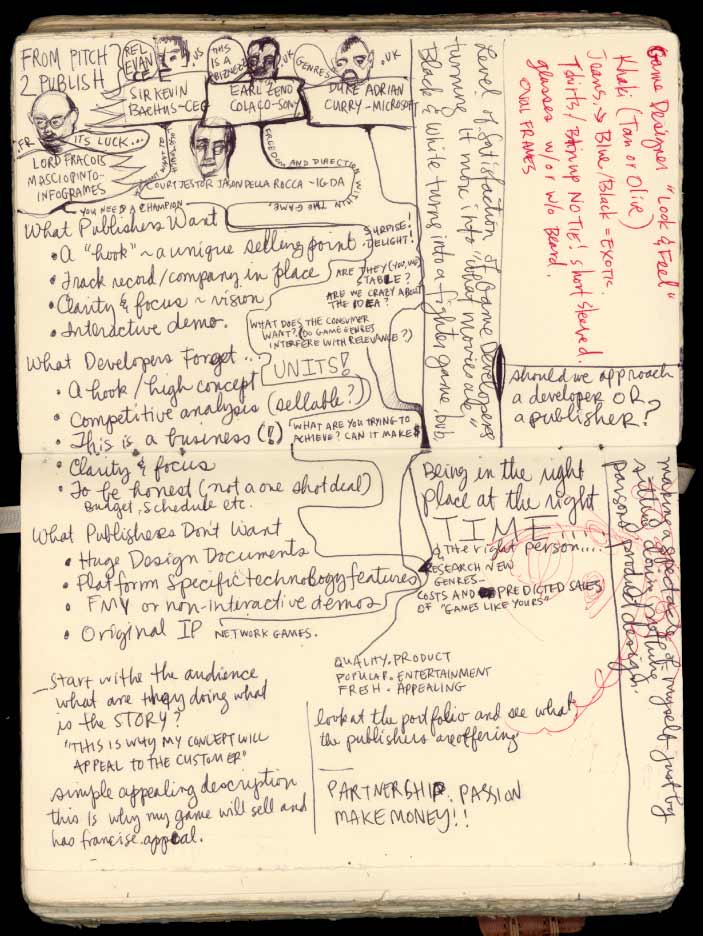 FROM PITCH
2 PUBLISH
REL
EVAN
CE
.US
THIS
IS A
BIZNESS
.UK
GENRES
.UK
SIR KEVIN
BACHUS-CEG
EARL ZENO
COLAÇO-SONY
DUKE ADRIAN
CURRY-MICROSOFT
.FR
ITS LUCK...
LORD FRACOIS
MASCIOPINTO-
INFOGRAMES
COURT JESTOR JASON DELLA ROCCA - IGDA
FREEDOM AND DIRECTION WITHIN
THE GAME
YOU NEED A CHAMPION
What Publishers Want
• A "hook" ~ a unique selling point
• Track record/company in place
• Clarity & focus ~ vision
• Interactive demo.
SURPRISE!
DELIGHT!
ARE THEY (YOU, WE)
STABLE?
ARE WE CRAZY ABOUT
THE IDEA?
WHAT DOES THE CONSUMER
WANT? (DO GAME GENRES
INTERFERE WITH RELEVANCE?)
What Developers Forget...
UNITS!
• A hook/high concept
• Competitive analysis (sellable?)
• This is a business (!)
• Clarity & focus
• To be honest (not a one shot deal)
Budget, schedule etc.
WHAT ARE YOU TRYING TO
ACHIEVE? CAN IT MAKE $
What Publishers Don't Want
• Huge Design Documents
• Platform Specific technology features
• FMV or non-interactive demos
• Original IP NETWORK GAMES.
Start withe the audience
what are they doing what
is the STORY?
"THIS IS WHY MY CONCEPT WILL
APPEAL TO THE CUSTOMER"
simple appealing description
this is why my game will sell and
has francise appeal.
Level of Satisfaction of Game Developers
turning it into "what movies are"
Black & White turns into a fighter game.
Game Designer "Look & Feel"
Khaki (Tan or Olive)
Jeans → Blue/Black = EXOTIC.
T shirts/Button up NO TIE! short sleeved.
glasses w/or w/o Beard.
OVAL FRAMES
should we approach
a developer OR
a publisher?
Being in the right
place at the right
TIME...
& The right person....
RESEARCH NEW
GENRES-
COSTS AND PREDICTED SALES
OF "GAMES LIKE YOURS"
making a spectacle of myself just by
sitting down next to the
parsons product design.
QUALITY. PRODUCT
POPULAR. ENTERTAINMENT
FRESH. APPEALING
look at the portfolio and see what
the publishers are offering
PARTNERSHIP. PASSION
MAKE MONEY!!